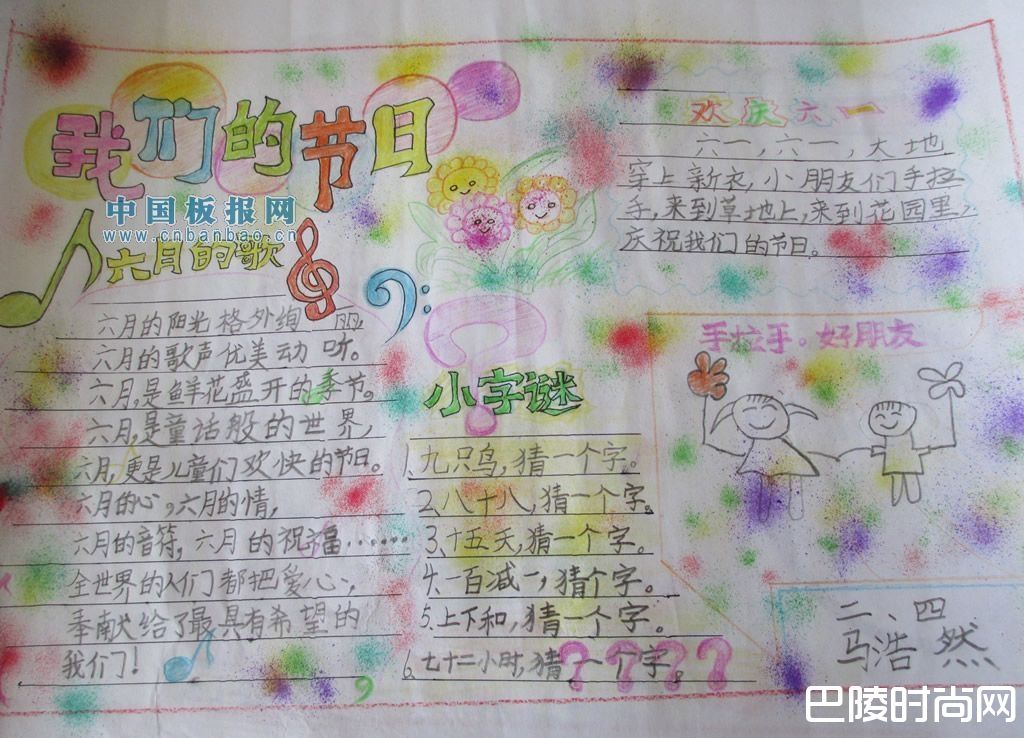 我们的节日
中国板报网
www.cnbanbao.cn
六月的歌
六月的阳光格外绚丽,
六月的歌声优美动听。
六月,是鲜花盛开的季节。
六月,是童话般的世界,
六月,更是儿童们欢快的节日。
六月的心,六月的情,
六月的音符,六月的祝福……
全世界的人们都把爱心,
奉献给了最具有希望的
我们们!
小字谜
1、九只鸟,猜一个字。
2、八十八,猜一个字。
3、十五天,猜一个字。
4、一百减一,猜个字。
5、上下和,猜一个字。
6、七十二小时,猜一个字。
????
欢庆六一
六一,六一,大地
穿上新衣,小朋友们手拉
手,来到草地上,来到花园里,
庆祝我们的节日。
手拉手。好朋友
二、四
马浩然
巴陵时尚网